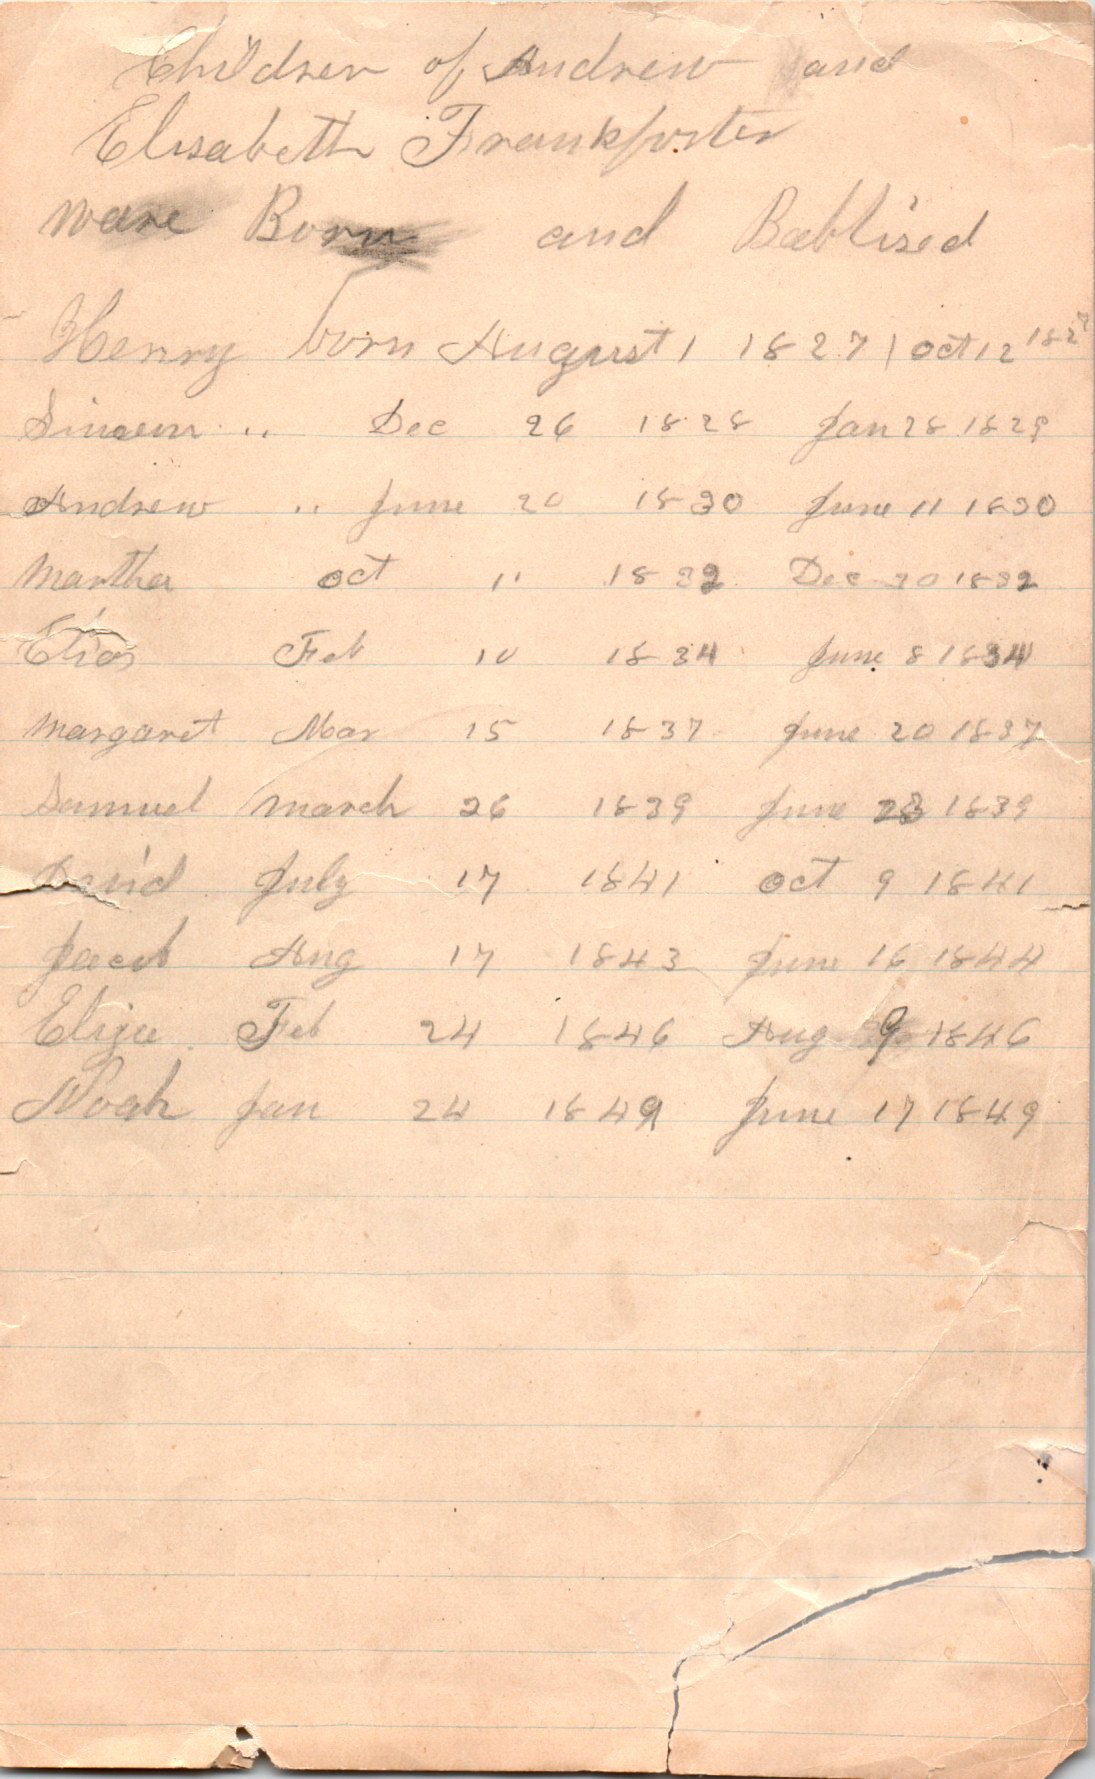 Children of Andrew and
Elisabeth Frankforter
ware Born and Bablised
Henry born August 1 1827 | oct 12 1827
Simoen .. Dec 26 1828 Jan 28 1829
Andrew .. June 20 1830 June 11 1830
Martha oct 11 1832 Dec 30 1832
Elias Feb 10 1834 June 8 1834
Margaret Mar 15 1837 June 20 1837
Samuel march 26 1839 June 23 1839
David July 17 1841 oct 9 1841
Jacob Aug 17 1843 June 16 1844
Eliza Feb 24 1846 Aug 9 1846
Noah Jan 24 1849 June 17 1849